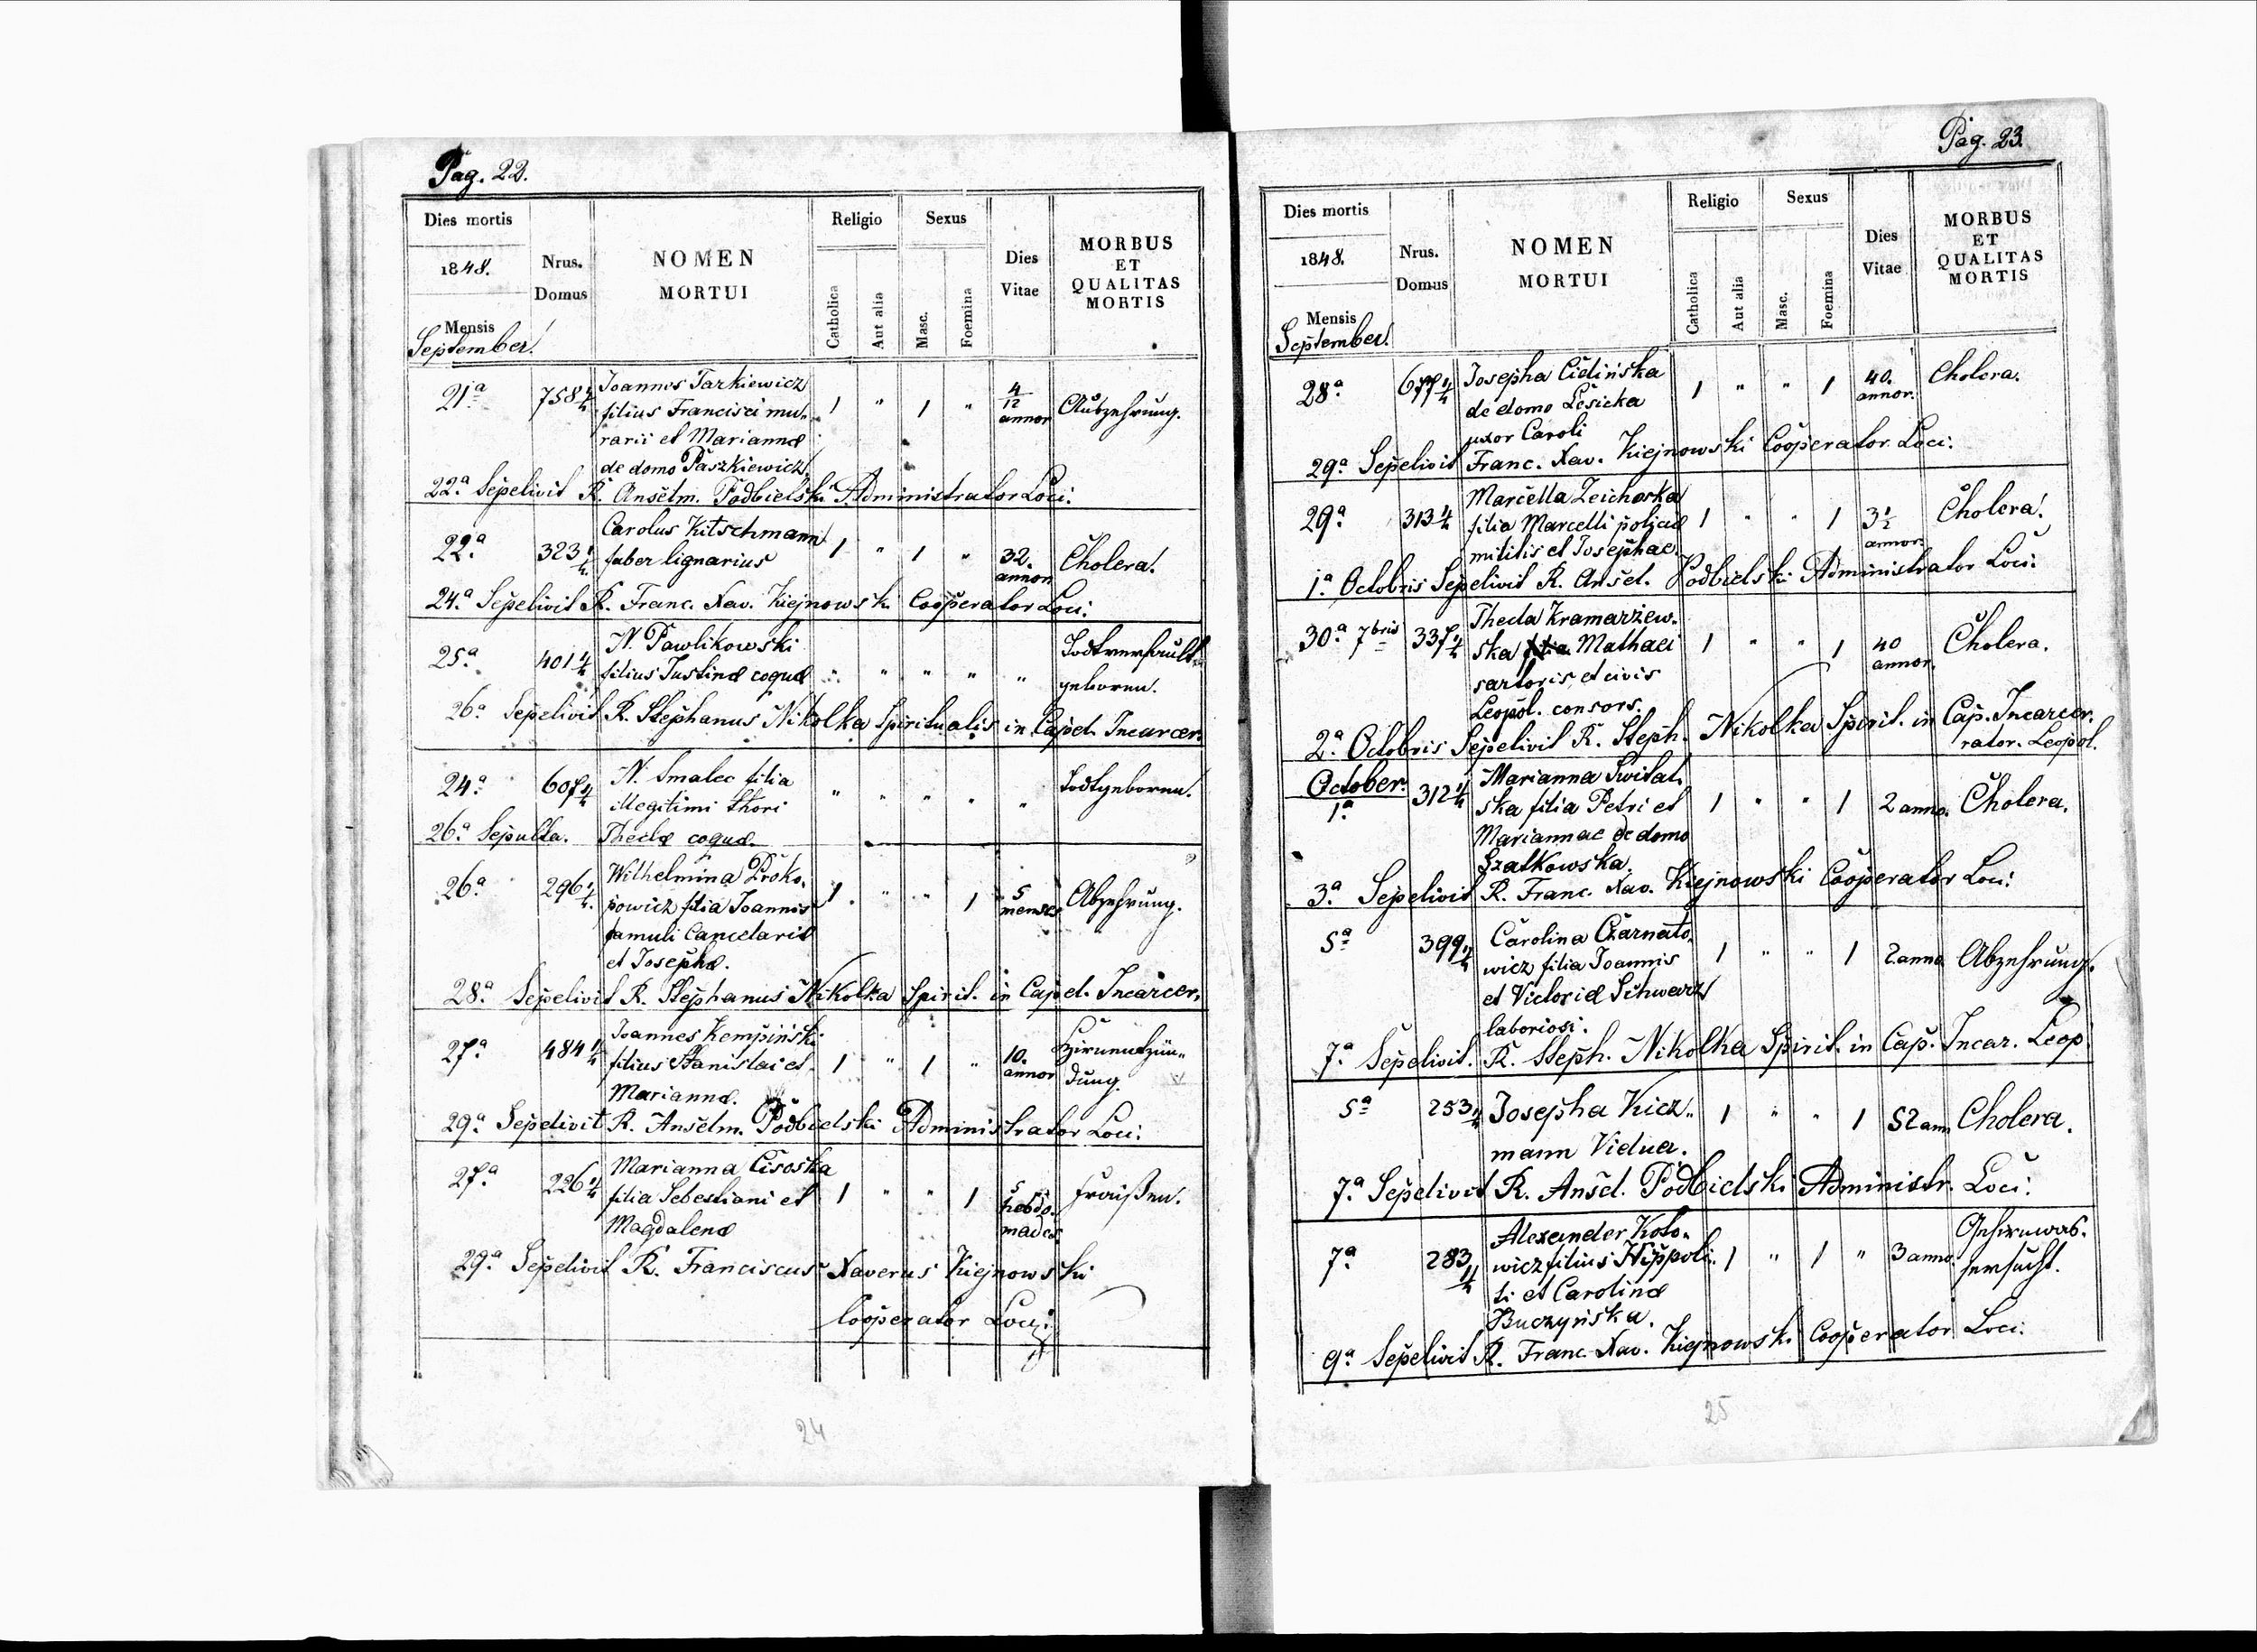 Pag. 22.
Dies mortis
1848.
Mensis
September.
Nrus.
Domus
NOMEN
MORTUI
Religio
Catholica
Aut alia
Sexus
Masc.
Foemina
Dies
Vitae
MORBUS
ET
QUALITAS
MORTIS
21ª 758 4/4 Joannes Tarkiewicz
filius Francisci mu-
rarii et Mariannæ
de domo Paszkiewicz 1 " 1 " 4/12 annor Auszehrung.
22ª Sepelivit R. Anselm. Podbielski Administrator Loci.
22ª 323 4/4 Carolus Kitschmann
faber lignarius 1 " 1 " 32. annor Cholera.
24ª Sepelivit R. Franc. Xav. Kiejnowski Cooperator Loci.
25ª 401 4/4 N. Pawlikowski
filius Justinæ coquæ " " " " " Todtverfault
geboren.
26ª Sepelivit R. Stephanus Nikolka Spiritualis in Capel. Incarcer.
24ª 607 4/4 N. Smalec filia
illegitimi thori " " " " " Todtgeboren.
26ª Sepulta. Theclæ coquæ.
26ª 296 4/4 Wilhelmina Proko-
powicz filia Joannis
famuli Cancelariæ
et Josephæ. 1 " " 1 5 menses Abzehrung.
28ª Sepelivit R. Stephanus Nikolka Spirit. in Capel. Incarcer.
27ª 484 4/4 Joannes Kempiński
filius Stanislai et
Mariannæ. 1 " 1 " 10. annor Hirnentzün-
dung.
29ª Sepelivit R. Anselm. Podbielski Administrator Loci.
27ª 226 4/4 Marianna Cisoska
filia Sebestiani et
Magdalenæ 1 " " 1 5 hebdo-
mades Fraißen.
29ª Sepelivit R. Franciscus Xaverus Kiejnowski
Cooperator Loci.
24
Pag. 23.
Dies mortis
1848.
Mensis
September.
Nrus.
Domus
NOMEN
MORTUI
Religio
Catholica
Aut alia
Sexus
Masc.
Foemina
Dies
Vitae
MORBUS
ET
QUALITAS
MORTIS
28ª 677 4/4 Josepha Cielińska
de domo Lesicka
uxor Caroli 1 " " 1 40. annor. Cholera.
29ª Sepelivit Franc. Xav. Kiejnowski Cooperator Loci.
29ª 313 4/4 Marcella Zeichoska
filia Marcelli poljcæ
militis et Josephae 1 " " 1 3 1/2 annor. Cholera.
1ª Octobris Sepelivit R. Ansel. Podbielski Administrator Loci.
30ª 7bris 337 4/4 Thecla Kramarzew-
ska filia Mathaei
sartoris et civis
Leopol. consors. 1 " " 1 40 annor. Cholera.
2ª Octobris Sepelivit R. Steph. Nikolka Spirit. in Cap. Incarcer.
rator. Leopol.
October.
1ª 312 4/4 Marianna Swital-
ska filia Petri et
Mariannae de domo
Szatkowska. 1 " " 1 2 anno. Cholera.
3ª Sepelivit R. Franc. Xav. Kiejnowski Cooperator Loci.
5ª 399 4/4 Carolina Czarnato-
wicz filia Joannis
et Victoriæ Schwarz
laboriosi. 1 " " 1 2. anno Abzehrung.
7ª Sepelivit. R. Steph. Nikolka Spirit. in Cap. Incar. Leop.
5ª 253 4/4 Josepha Kicz-
mann Vidua. 1 " " 1 52 ann Cholera.
7ª Sepelivit R. Ansel. Podbielski Administr. Loci.
7ª 283 4/4 Alexander Koto-
wicz filius Hippoli-
ti et Carolinæ
Buczyńska. 1 " 1 " 3 anno. Gehirnwas-
sersucht.
9ª Sepelivit R. Franc. Xav. Kiejnowski Cooperator Loci.
25